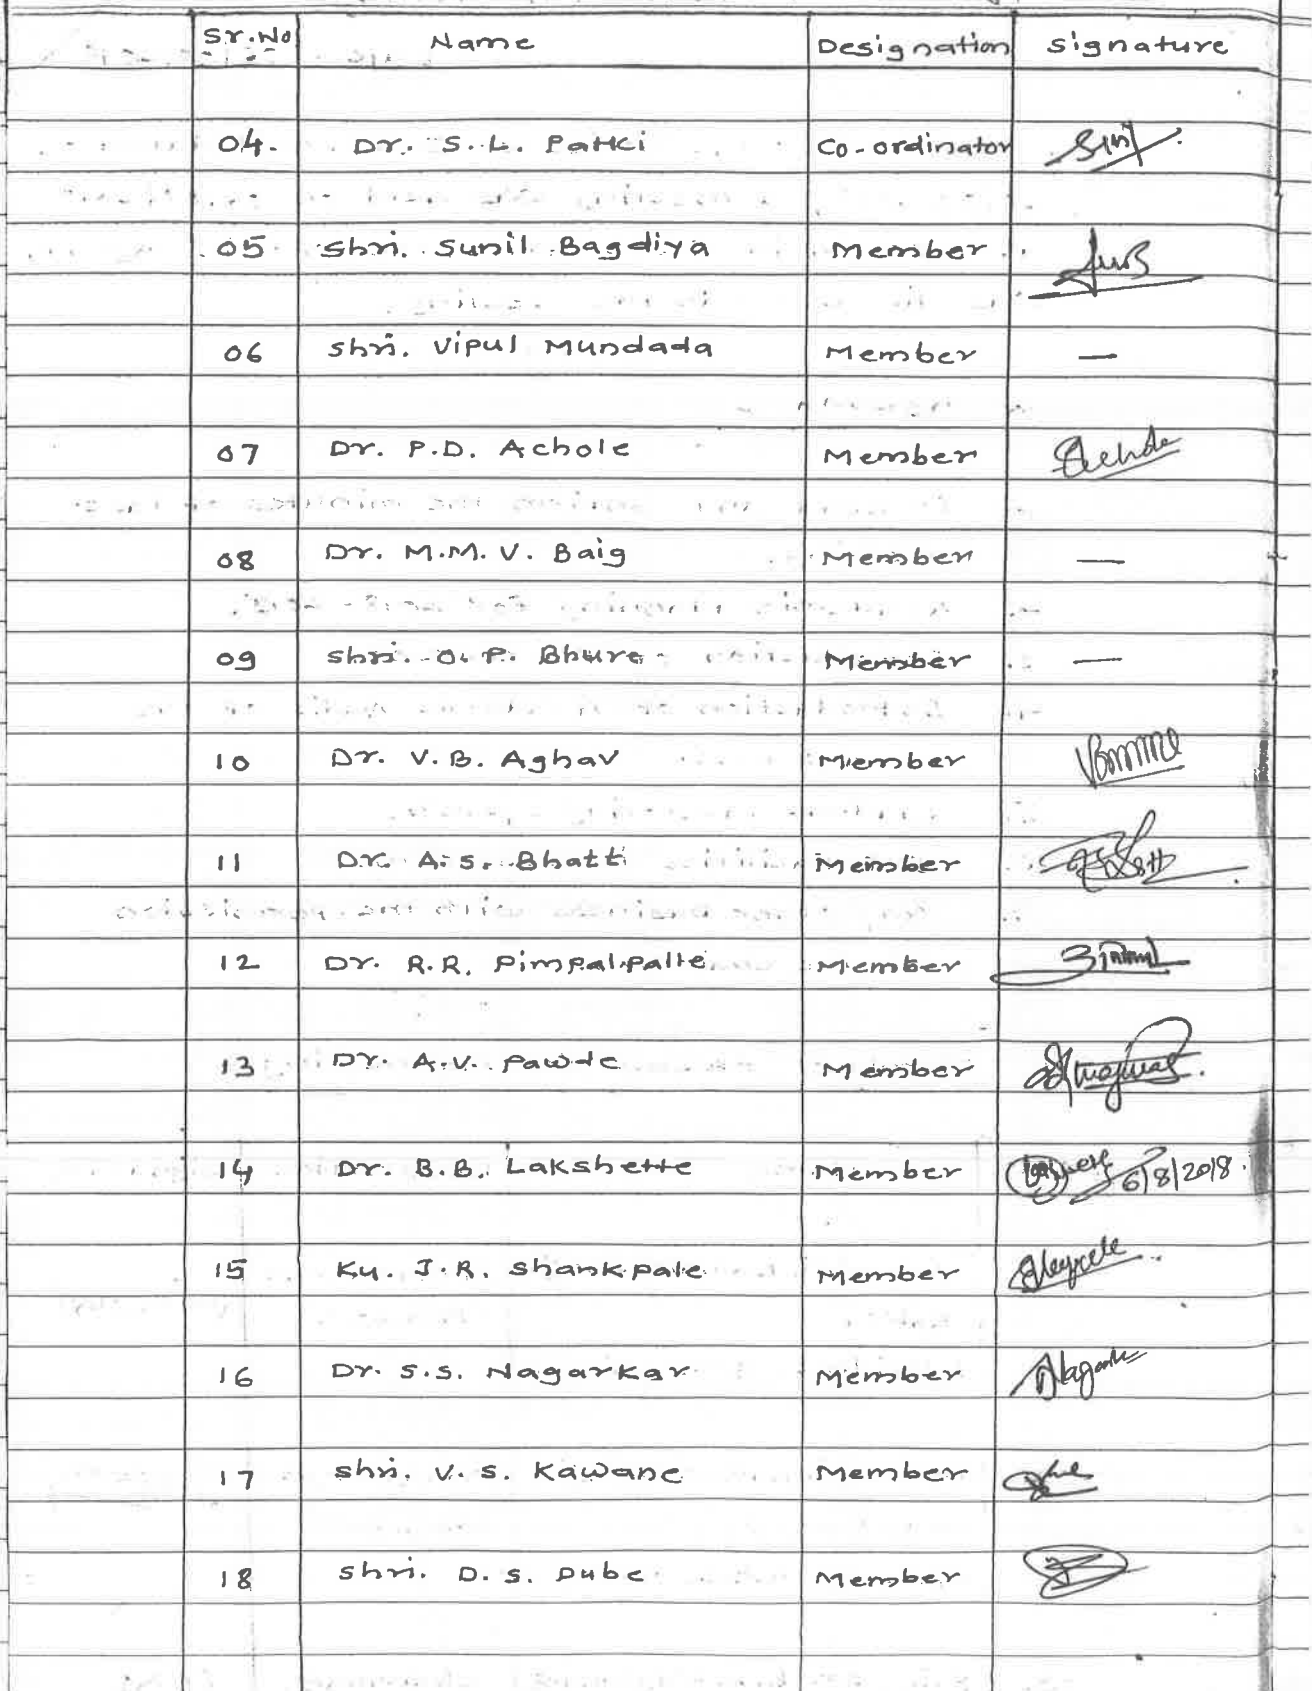 Sr.No Name Designation Signature
04. Dr. S.L. Patki Co-ordinator
05 Shri. Sunil Bagdiya Member
06 Shri. Vipul Mundada Member —
07 Dr. P.D. Achole Member
08 Dr. M.M.V. Baig Member —
09 Shri. O.P. Bhure Member —
10 Dr. V.B. Aghav Member
11 Dr. A.S. Bhatti Member
12 Dr. R.R. Pimpalpalle Member
13 Dr. A.V. Pawde Member
14 Dr. B.B. Lakshette Member 6/8/2018.
15 Ku. J.R. Shankpale Member
16 Dr. S.S. Nagarkar Member
17 Shri. V.S. Kawane Member
18 Shri. D.S. Dube Member